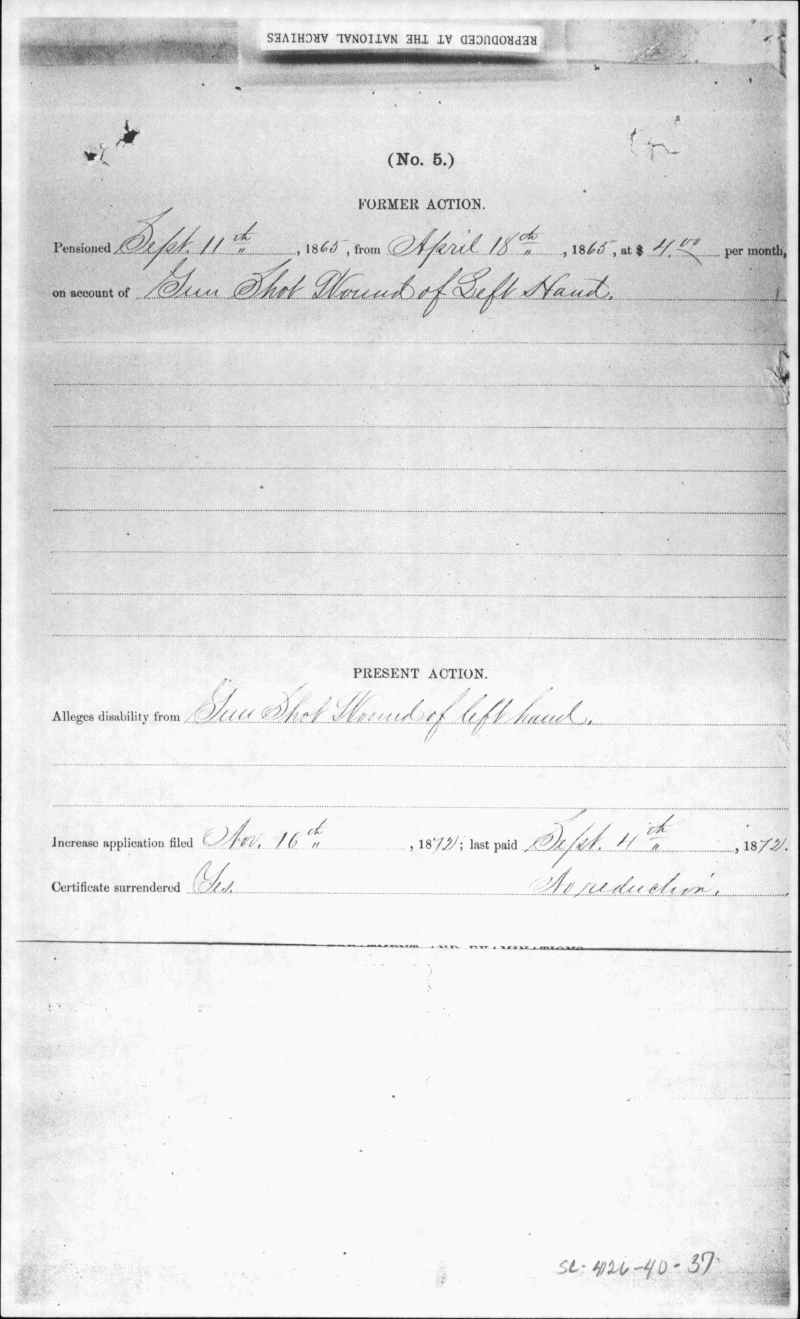 REPRODUCED AT THE NATIONAL ARCHIVES
(No. 5.)
FORMER ACTION.
Pensioned Sept. 11th, 1865, from April 18th, 1865, at $ 4.00 per month,
on account of Gun Shot Wound of Left Hand.
PRESENT ACTION.
Alleges disability from Gun Shot Wound of left hand.
Increase application filed Nov. 16th, 1872; last paid Sept. 4th, 1872.
Certificate surrendered Yes. No reduction.
TREATMENT AND EXAMINATIONS
SC-4126-40-37